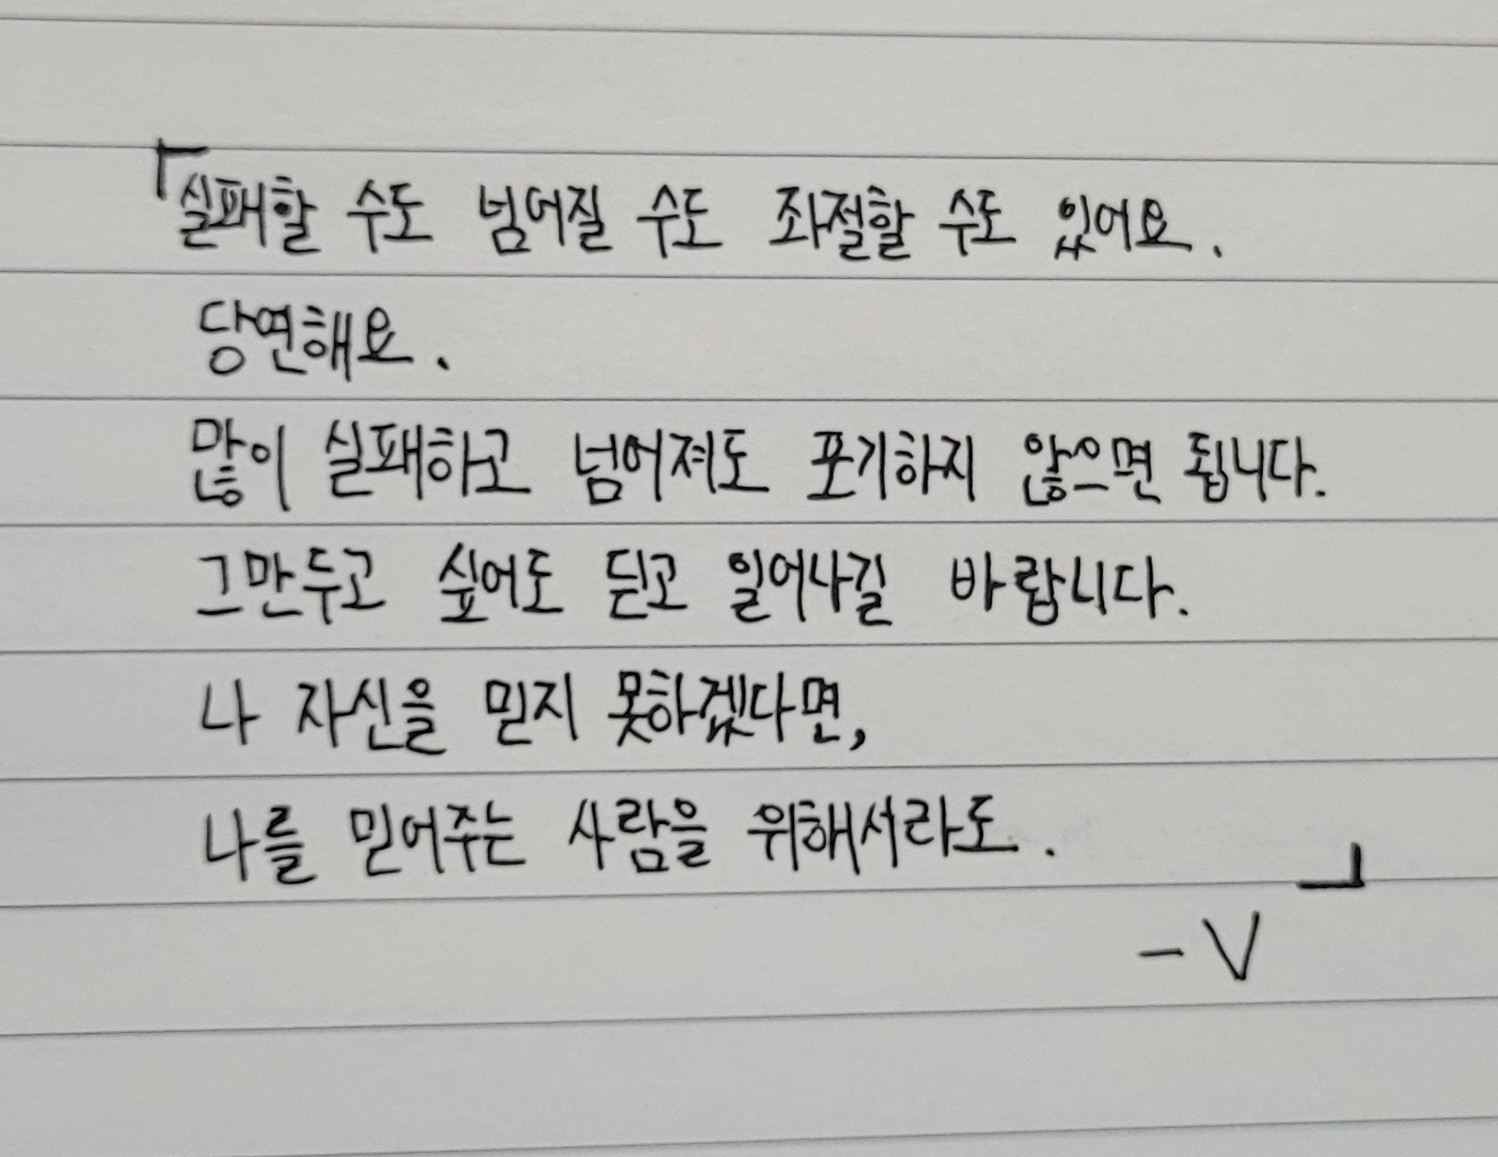 「실패할 수도 넘어질 수도 좌절할 수도 있어요.
당연해요.
많이 실패하고 넘어져도 포기하지 않으면 됩니다.
그만두고 싶어도 딛고 일어나길 바랍니다.
나 자신을 믿지 못하겠다면,
나를 믿어주는 사람을 위해서라도. 」
- V